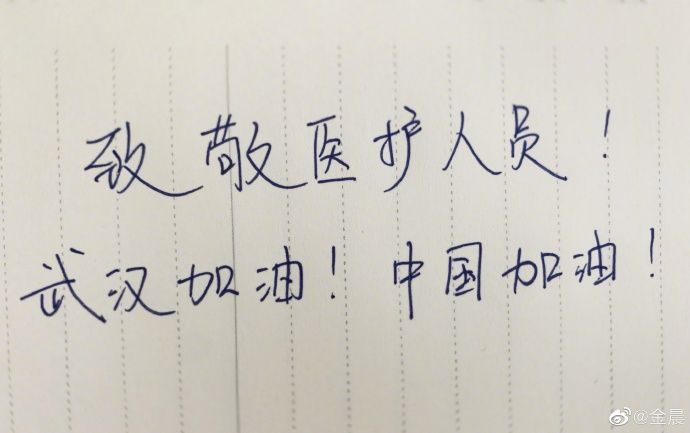 致敬医护人员！
武汉加油！中国加油！
@金晨